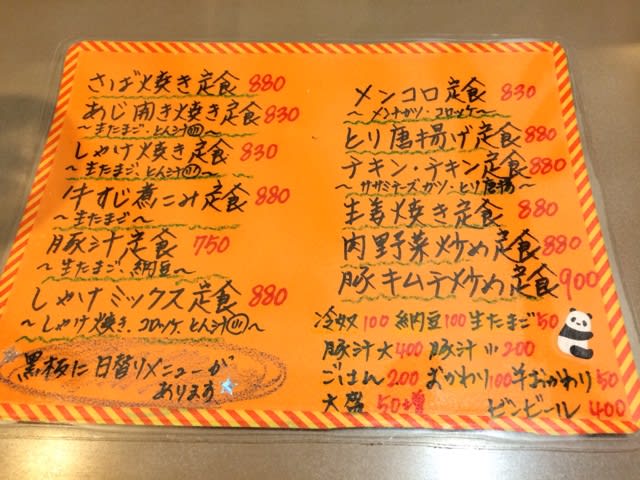 さば焼き定食 880
あじ開き焼き定食 830
〜生たまご、とん汁㊥〜
しゃけ焼き定食 830
〜生たまご、とん汁㊥〜
牛すじ煮こみ定食 880
〜生たまご〜
豚汁定食 750
〜生たまご、納豆〜
しゃけミックス定食 880
〜しゃけ焼き、コロッケ、とん汁㊥〜
黒板に日替りメニューが
あります
メンコロ定食 830
〜メンチカツ・コロッケ〜
とり唐揚げ定食 880
チキン・チキン定食 880
〜ササミチーズカツ・とり唐揚〜
生姜焼き定食 880
肉野菜炒め定食 880
豚キムチ炒め定食 900
冷奴100 納豆100 生たまご50
豚汁大400 豚汁小200
ごはん200 おかわり100 半おかわり50
大盛 50増
ビンビール 400